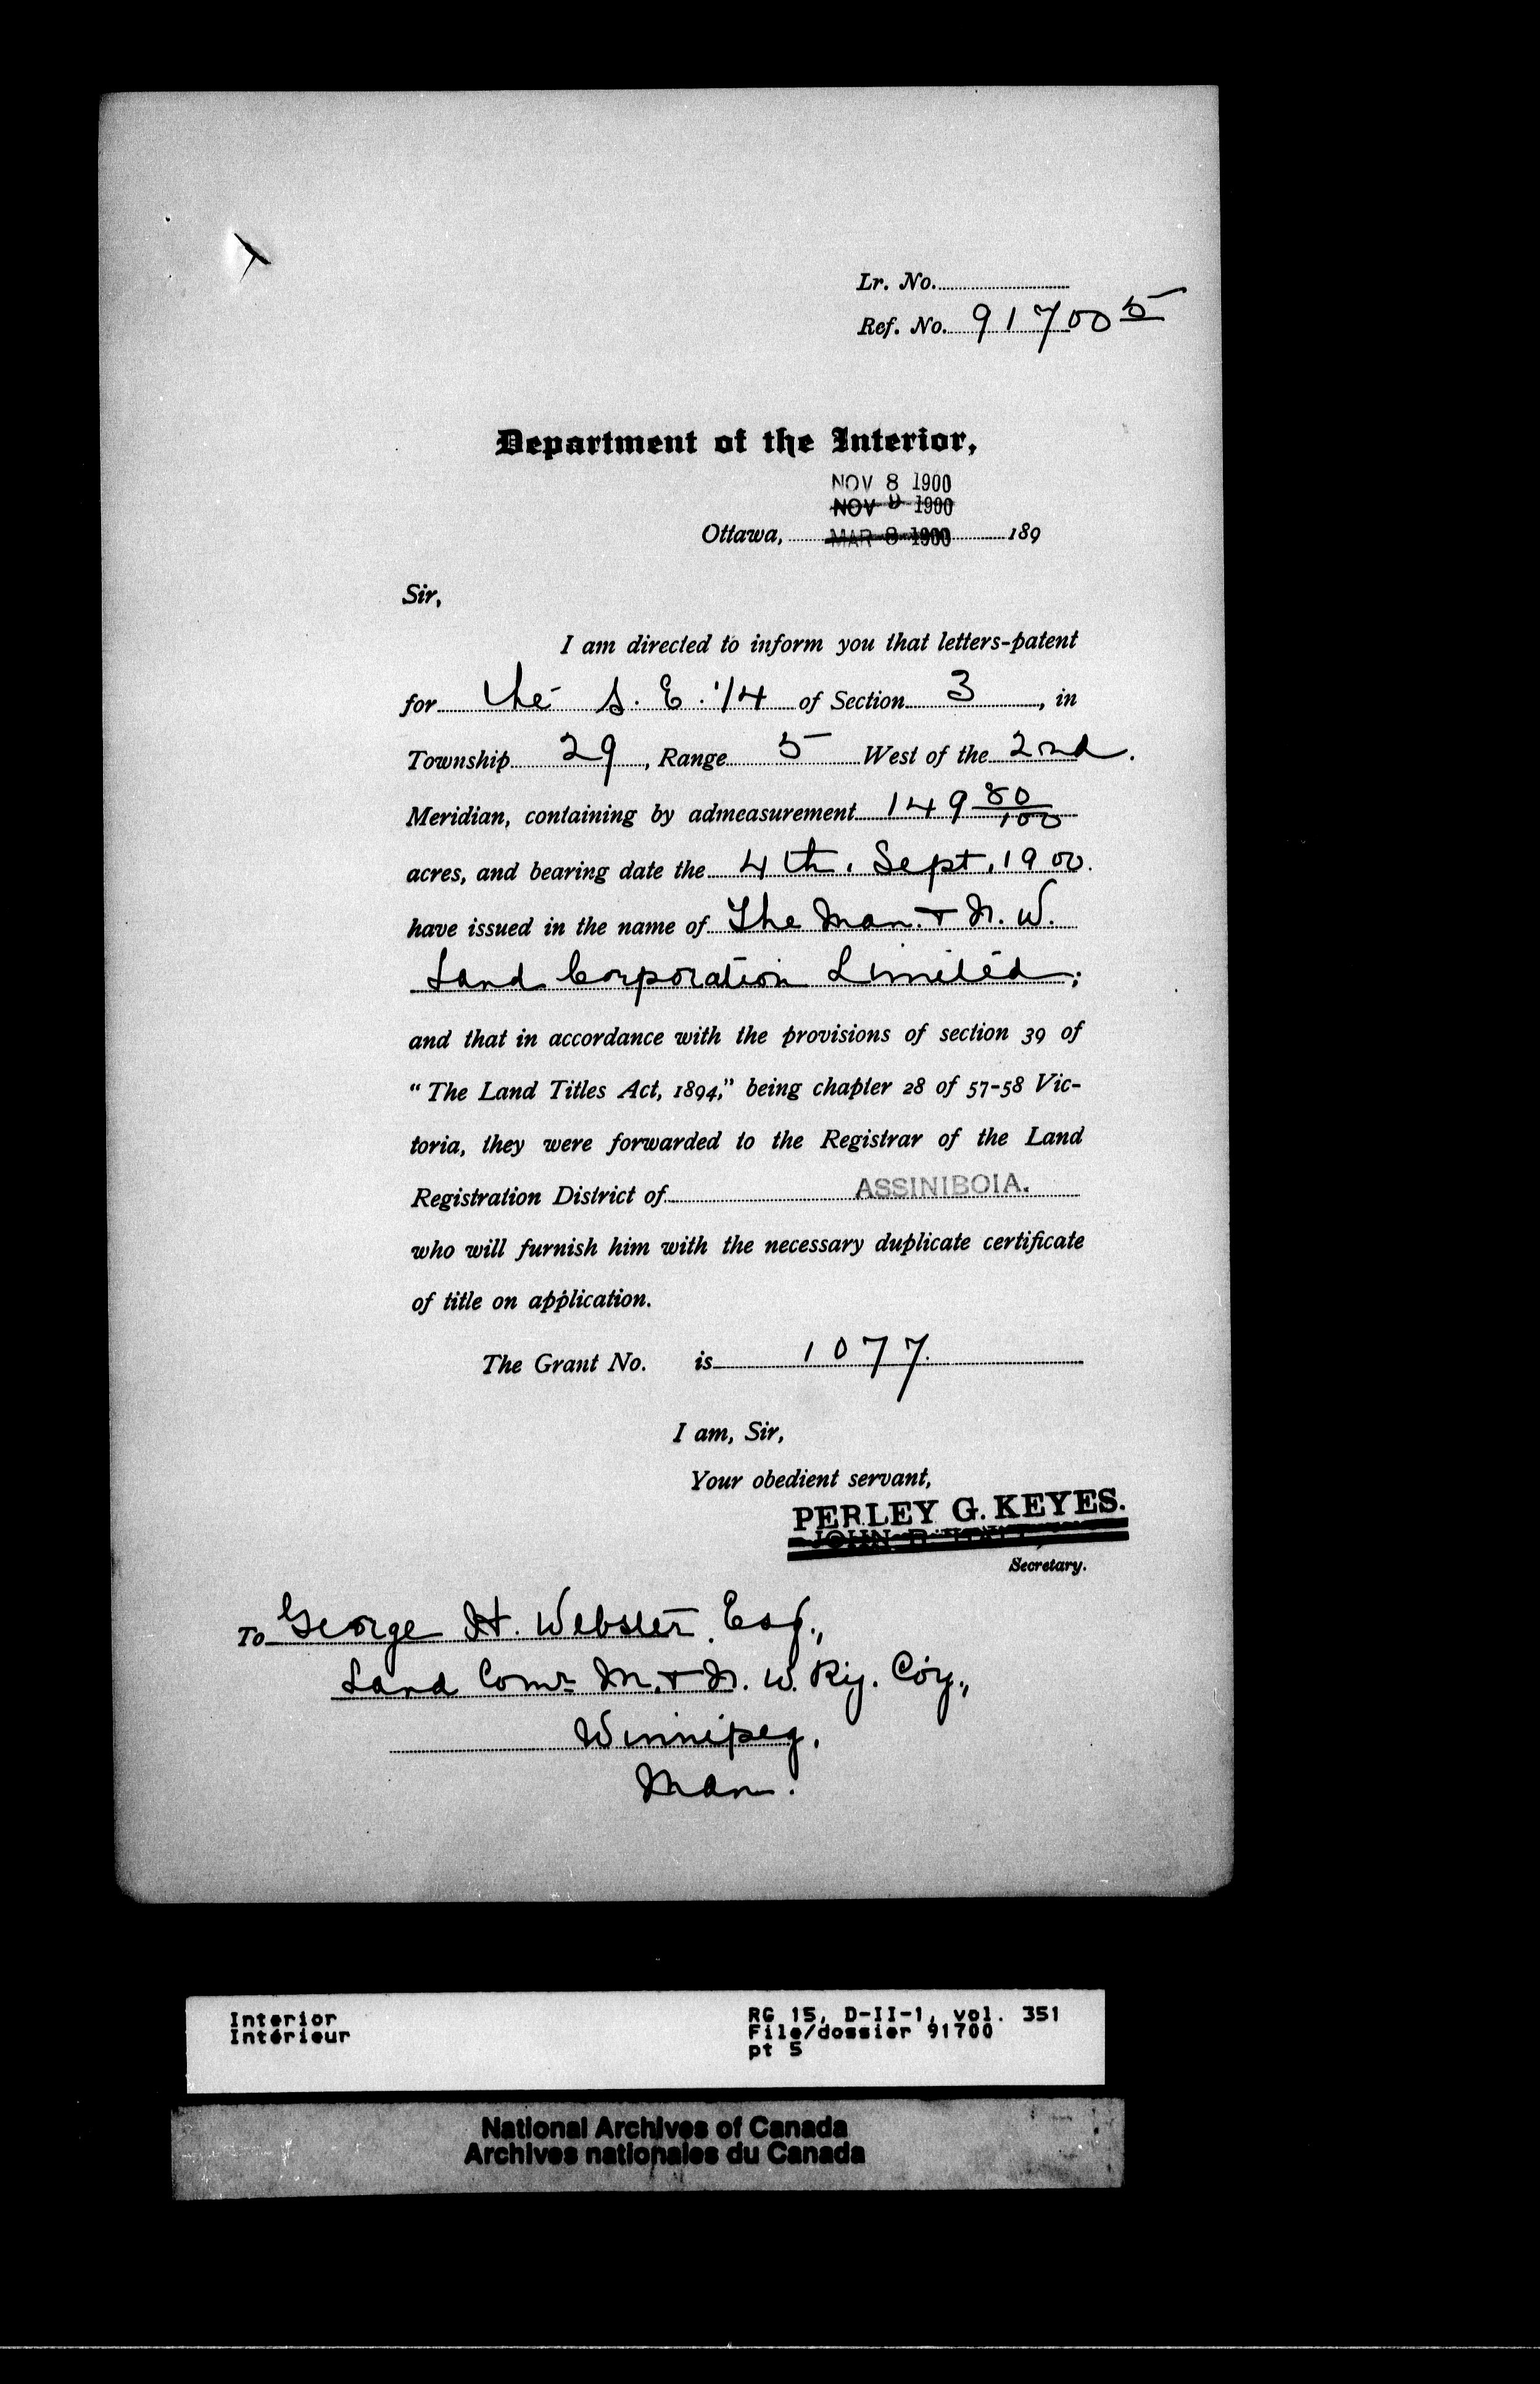 Lr. No.
Ref. No. 91700 5
Department of the Interior,
NOV 8 1900
NOV 1900
Ottawa, MAR 8 1900 189
Sir,
I am directed to inform you that letters-patent
for the S. E. 1/4 of Section 3, in
Township 29, Range 5 West of the 2nd.
Meridian, containing by admeasurement 149 80/100
acres, and bearing date the 4th. Sept. 1900.
have issued in the name of The Man. & N. W.
Land Corporation Limited;
and that in accordance with the provisions of section 39 of
"The Land Titles Act, 1894," being chapter 28 of 57-58 Vic-
toria, they were forwarded to the Registrar of the Land
Registration District of ASSINIBOIA.
who will furnish him with the necessary duplicate certificate
of title on application.
The Grant No. is 1077.
I am, Sir,
Your obedient servant,
PERLEY G. KEYES.
JOHN R.
Secretary.
To George H. Webster Esq.,
Land Comr M. & N. W. Ry. Coy.,
Winnipeg,
Man.
Interior RG 15, D-II-1, vol. 351
Intérieur File/dossier 91700
pt 5
National Archives of Canada
Archives nationales du Canada